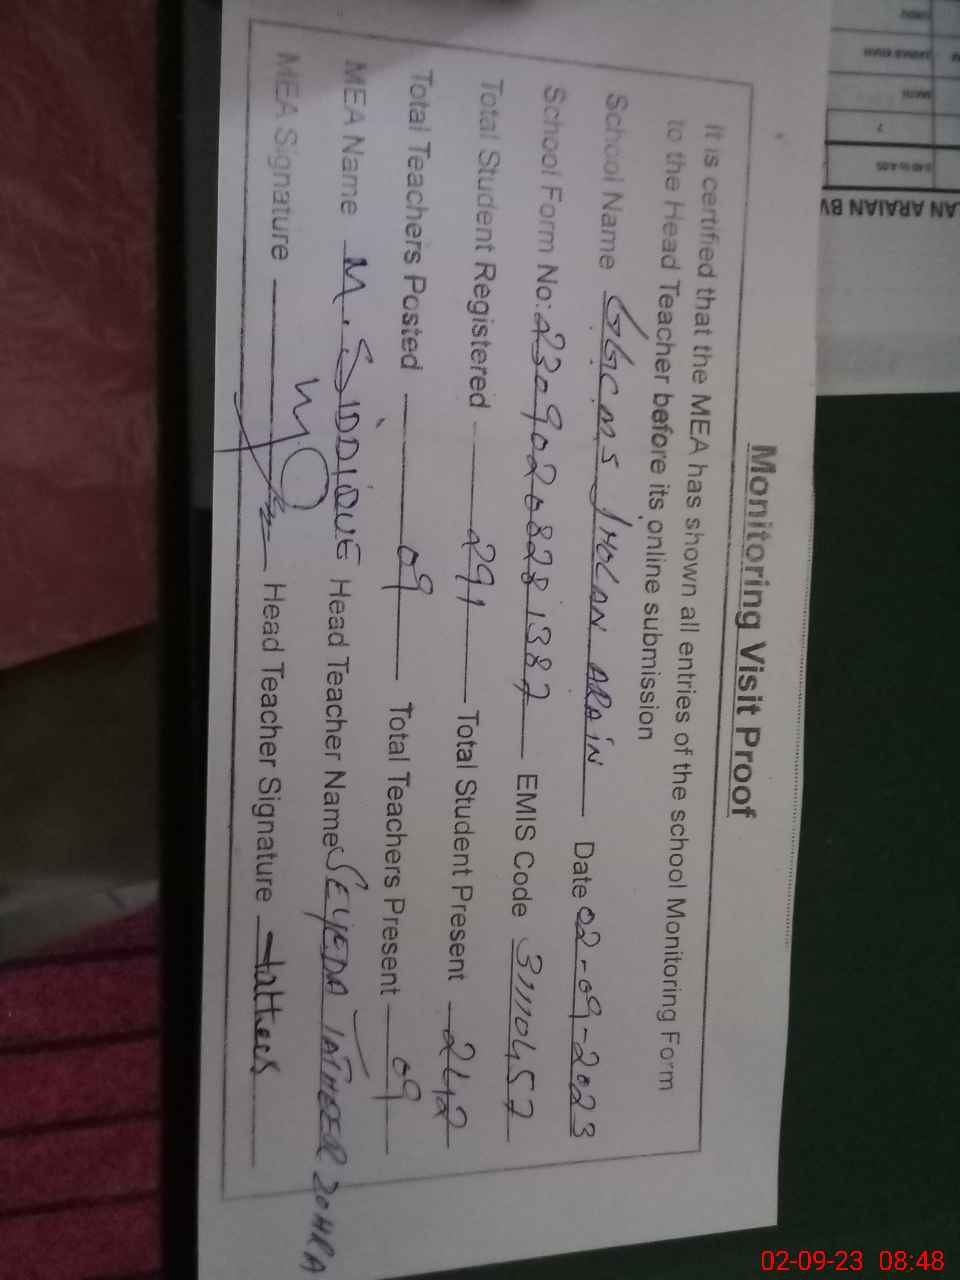 Monitoring Visit Proof
It is certified that the MEA has shown all entries of the school Monitoring Form
to the Head Teacher before its online submission
School Name GGCMS JHOLAN ARAIN Date 02-09-2023
School Form No: 23090208281387 EMIS Code 31110457
Total Student Registered 291 Total Student Present 242
Total Teachers Posted 09 Total Teachers Present 09
MEA Name M. SIDDIQUE Head Teacher Name SEYEDA TATHEER ZOHRA
MEA Signature Head Teacher Signature
LAN ARAIAN BW
02-09-23 08:48